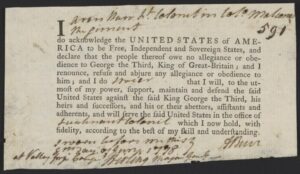 I Aaron Burr Lt Colonel in Colo Malcoms
Regiment
591
do acknowledge the UNITED STATES of AME-
RICA to be Free, Independent and Sovereign States, and
declare that the people thereof owe no allegiance or obe-
dience to George the Third, King of Great-Britain; and I
renounce, refuse and abjure any allegiance or obedience to
him; and I do swear that I will, to the ut-
most of my power, support, maintain and defend the said
United States against the said King George the Third, his
heirs and successors, and his or their abettors, assistants and
adherents, and will serve the said United States in the office of
Lieutenant Colonel which I now hold, with
fidelity, according to the best of my skill and understanding.
Sworn before me this
day of 1778
at Valley Forge Camp Stirling Major Genl
A Burr